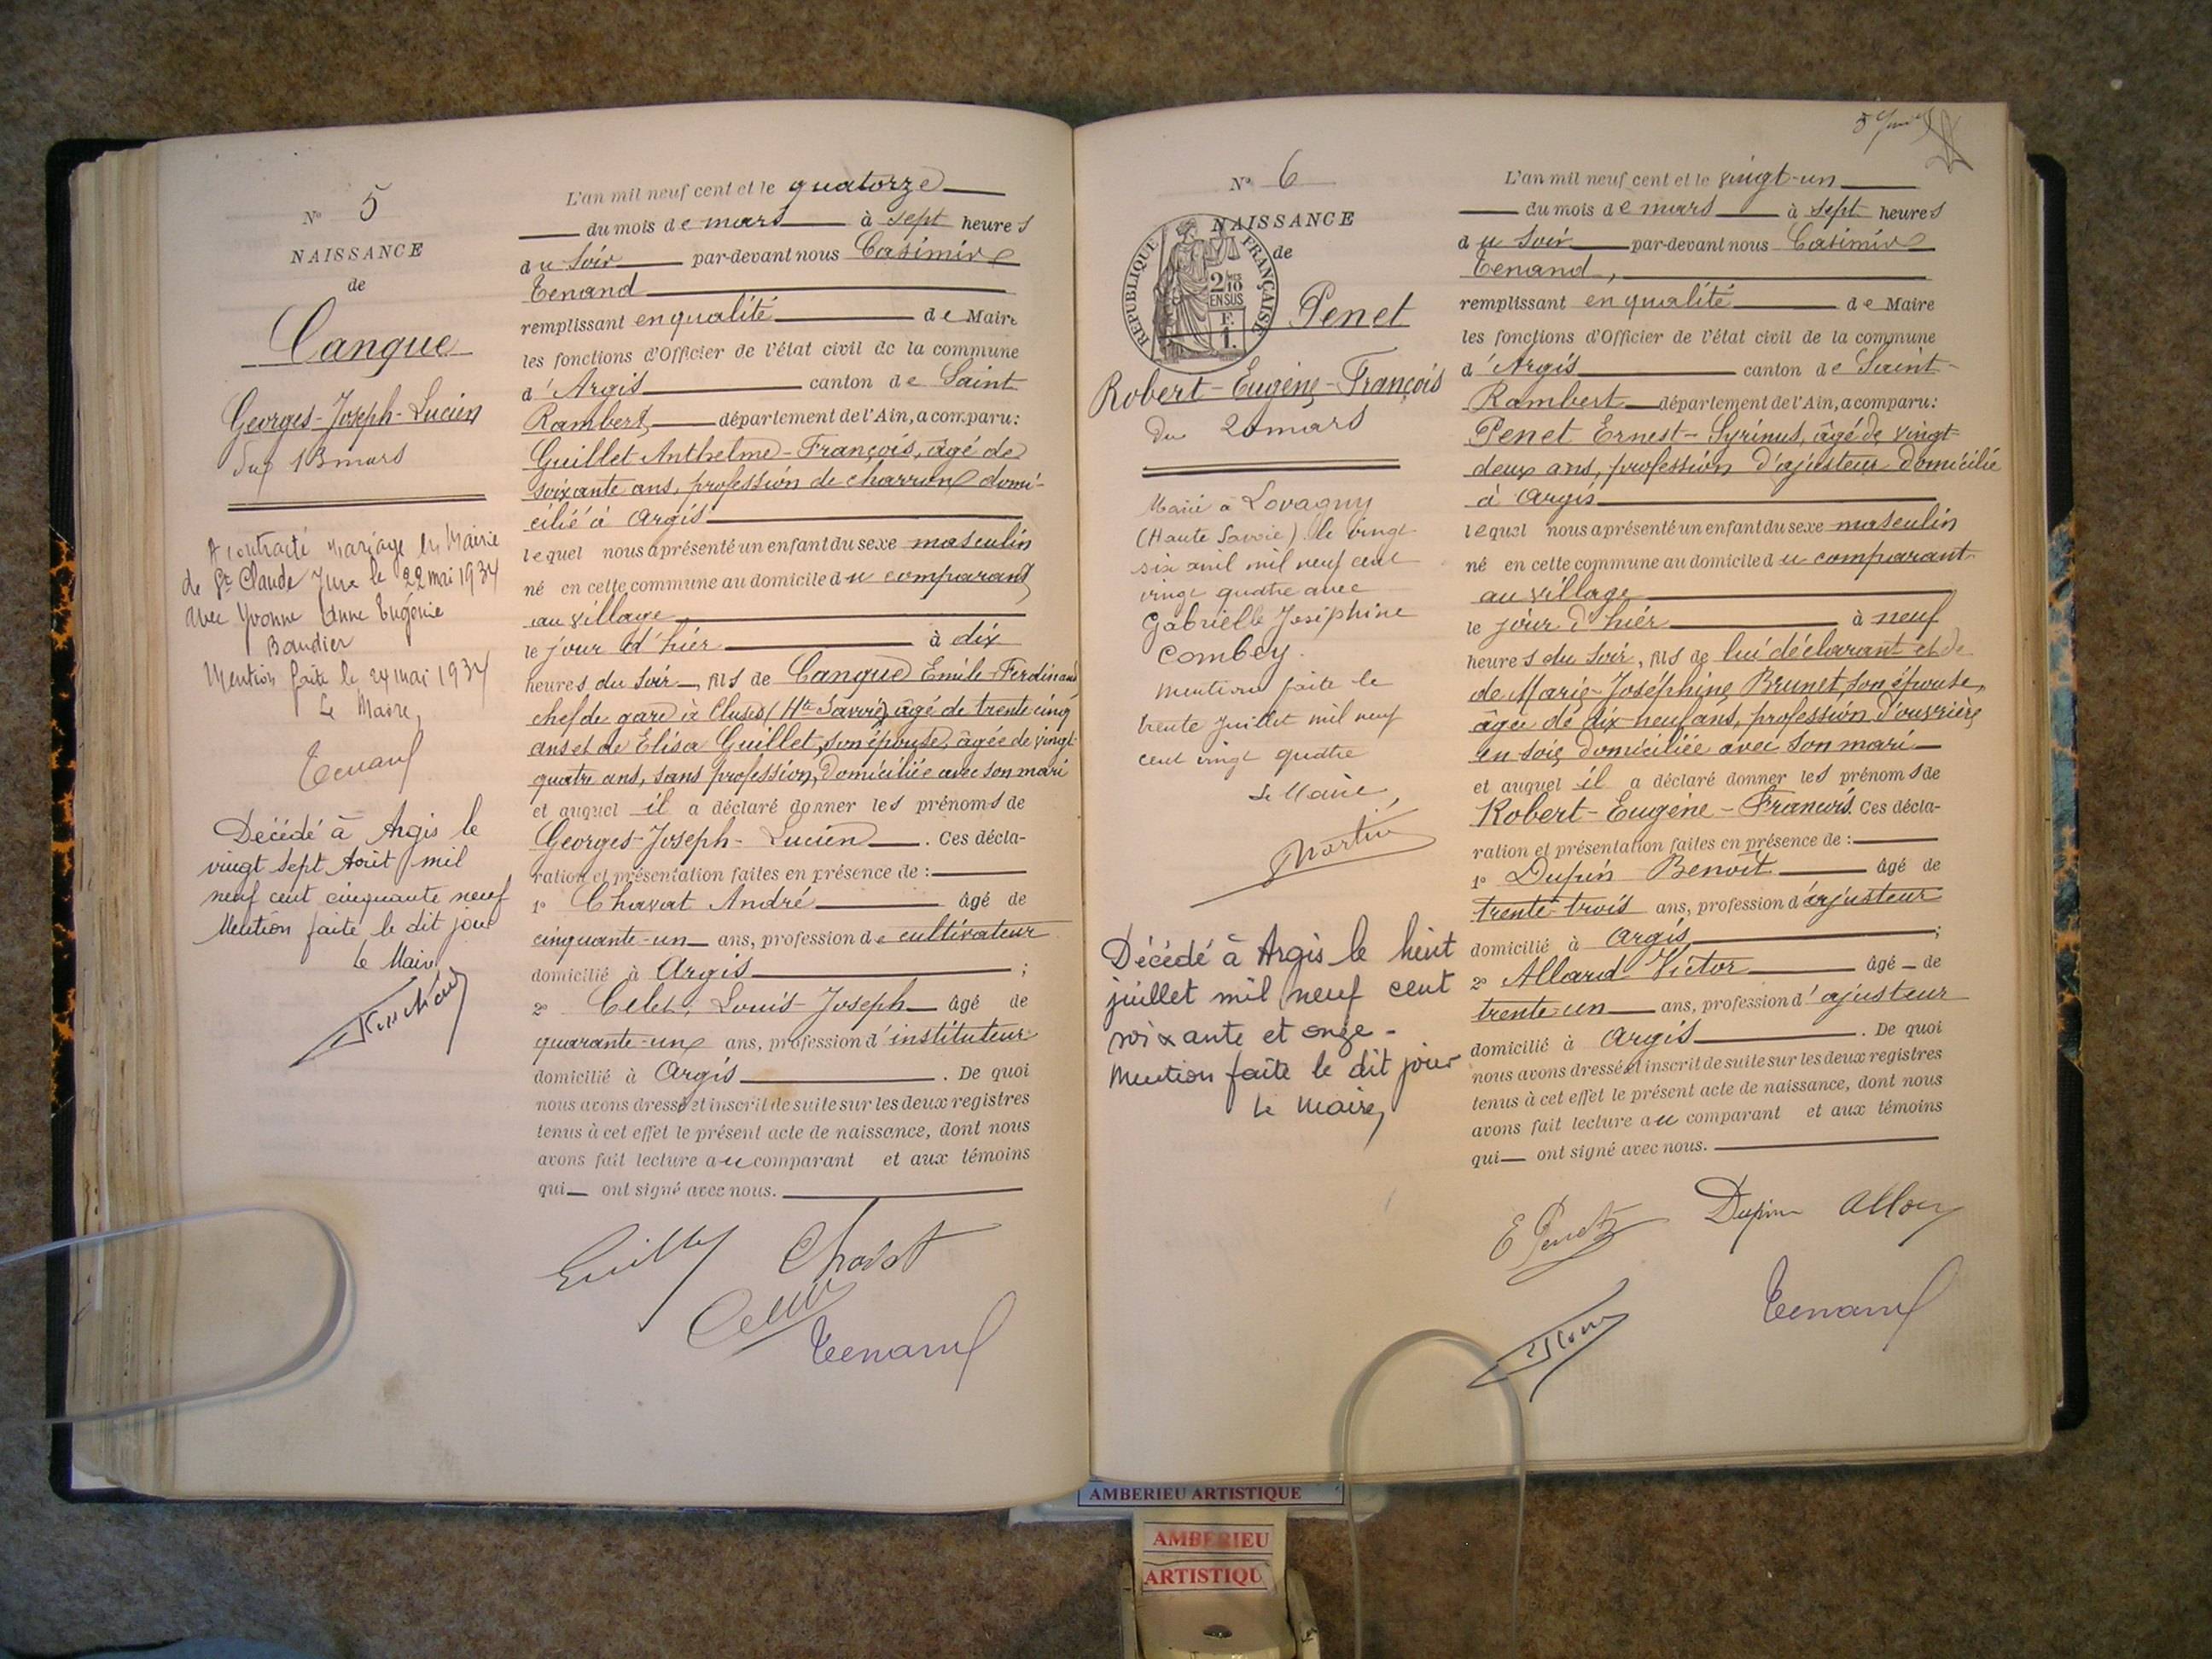 N° 5
NAISSANCE
de
Cangue
Georges-Joseph-Lucien
du 13 mars
A contracté mariage en Mairie
de St Claude Jura le 22 mai 1934
avec Yvonne Anne Eugénie
Baudier
Mention faite le 24 mai 1934
Le Maire,
Tenand
Décédé à Argis le
vingt sept Août mil
neuf cent cinquante neuf
Mention faite le dit jour
Le Maire
L'an mil neuf cent et le quatorze
du mois de mars à sept heures
du soir par-devant nous Casimir
Tenand
remplissant en qualité de Maire
les fonctions d'Officier de l'état civil de la commune
d'Argis canton de Saint
Rambert département de l'Ain, a comparu:
Guillet Anthelme-François, âgé de
soixante ans, profession de charron domi-
cilié à Argis
lequel nous a présenté un enfant du sexe masculin
né en cette commune au domicile du comparant
au village
le jour d'hier à dix
heures du soir, fils de Cangue Emile-Ferdinand
chef de gare à Cluses (Hte Savoie) âgé de trente cinq
ans et de Elisa Guillet, son épouse, âgée de vingt-
quatre ans, sans profession, domiciliée avec son mari
et auquel il a déclaré donner les prénoms de
Georges-Joseph-Lucien. Ces décla-
ration et présentation faites en présence de :
1° Chavat André âgé de
cinquante-un ans, profession de cultivateur
domicilié à Argis ;
2° Celet, Louis-Joseph âgé de
quarante-un ans, profession d'instituteur
domicilié à Argis. De quoi
nous avons dressé et inscrit de suite sur les deux registres
tenus à cet effet le présent acte de naissance, dont nous
avons fait lecture au comparant et aux témoins
qui ont signé avec nous.
Chavat
Tenand
N° 6
NAISSANCE
de
REPUBLIQUE FRANÇAISE
2/10
EN SUS
F.
1.
Penet
Robert-Eugène-François
Du 20 mars
Marié à Lovagny
(Haute Savoie) le vingt
six avril mil neuf cent
vingt quatre avec
Gabrielle Joséphine
Combey.
Mention faite le
trente Juillet mil neuf
cent vingt quatre
Le Maire,
Martin
Décédé à Argis le huit
juillet mil neuf cent
soixante et onze -
Mention faite le dit jour
Le Maire,
L'an mil neuf cent et le vingt-un
du mois de mars à sept heures
du soir par-devant nous Casimir
Tenand,
remplissant en qualité de Maire
les fonctions d'Officier de l'état civil de la commune
d'Argis canton de Saint-
Rambert département de l'Ain, a comparu:
Penet Ernest-Syrinus, âgé de vingt-
deux ans, profession d'ajusteur domicilié
à Argis
lequel nous a présenté un enfant du sexe masculin
né en cette commune au domicile du comparant
au village
le jour d'hier à neuf
heures du soir, fils de lui déclarant et de
de Marie-Joséphine Brunet, son épouse,
âgée de dix-neuf ans, profession d'ouvrière
en soie, domiciliée avec son mari
et auquel il a déclaré donner les prénoms de
Robert-Eugène-François. Ces décla-
ration et présentation faites en présence de :
1° Dupin Benoît âgé de
trente-trois ans, profession d'ajusteur
domicilié à Argis ;
2° Allard Victor âgé de
trente-un ans, profession d'ajusteur
domicilié à Argis. De quoi
nous avons dressé et inscrit de suite sur les deux registres
tenus à cet effet le présent acte de naissance, dont nous
avons fait lecture au comparant et aux témoins
qui ont signé avec nous.
E Penet Dupin
Tenand
AMBERIEU ARTISTIQUE
AMBERIEU
ARTISTIQU